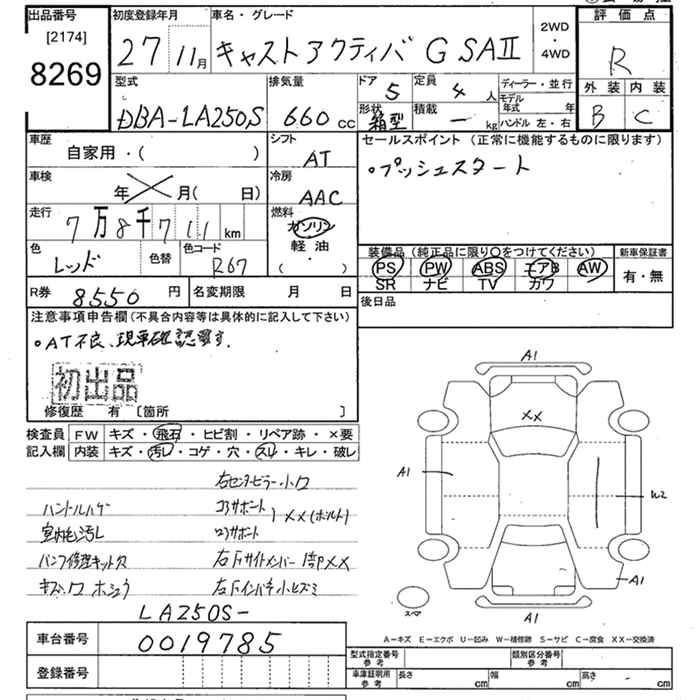 出品番号 初度登録年月 車名・グレード 評価点
[2174]
8269
27 11月 キャストアクティバ G SAⅡ 2WD・4WD R
型式 排気量 ドア 5 定員 4人 ディーラー・並行 外装 内装
DBA-LA250S 660cc 形状 箱型 積載 ー kg モデル年式 年 ハンドル 左・右 B C
車歴 シフト セールスポイント (正常に機能するものに限ります)
自家用・( ) AT ・プッシュスタート
車検 年 月( 日) 冷房 AAC
走行 7万8千711km 燃料 ガソリン・軽油・( )
色 レッド 色替 色コード R67
装備品 (純正品に限り○をつけてください) 新車保証書
PS PW ABS エアB AW 有・無
SR ナビ TV カワ
R券 8550円 名変期限 月 日 後日品
注意事項申告欄(不具合内容等は具体的に記入して下さい)
・AT不良、現車確認要す.
初出品
修復歴 有 [箇所 ]
検査員 FW キズ・飛石・ヒビ割・リペア跡・×要
記入欄 内装 キズ・汚し・コゲ・穴・スレ・キレ・破レ
右センターピラー小凹
ハンドルハゲ コアサポート
XX(ボルト)
室内毛汚し ロアサポート
バンプ修理キット欠 右Fサイドメンバー
キズ凹 ホシュウ 右Fインパネ小ヒズミ
LA250S-
車台番号 0019785
登録番号
A1
XX
A1
W2
A1
スペア
A1
A-キズ E-エクボ U-凹み W-補修跡 S-サビ C-腐食 XX-交換済
型式指定番号 参考 類別区分番号 参考
車庫証明用 参考 長さ cm 幅 cm 高さ cm